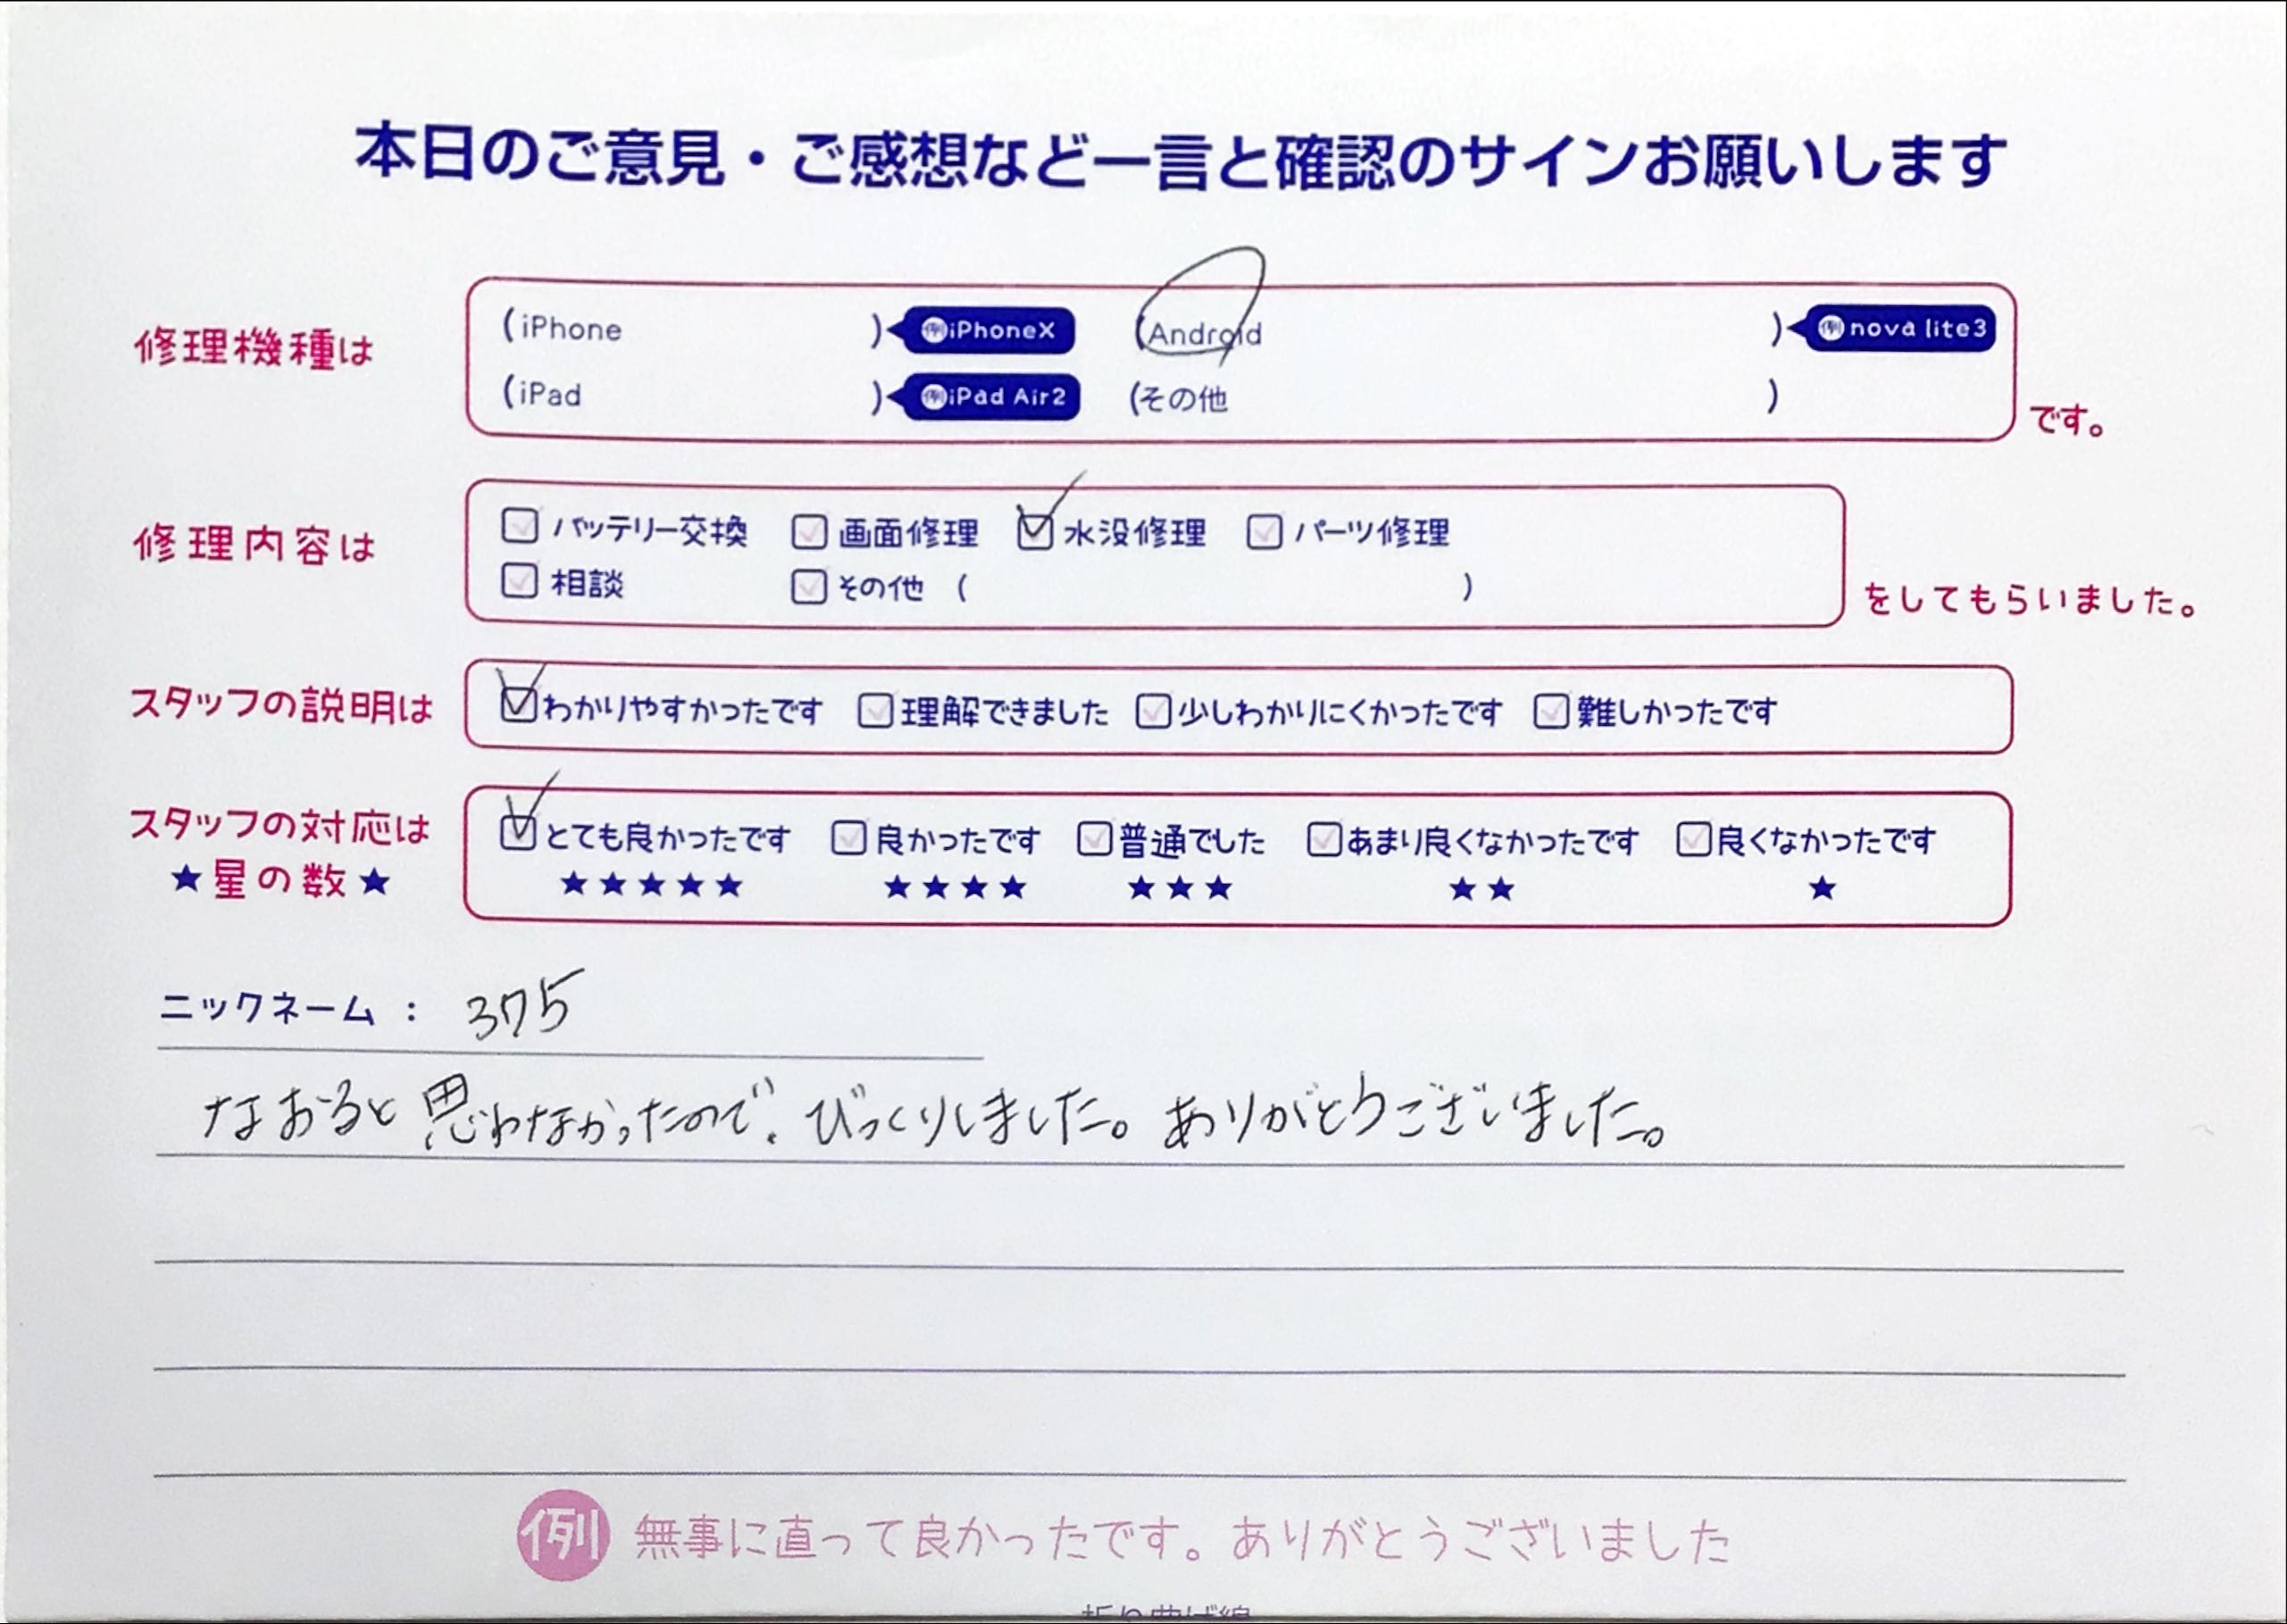 本日のご意見・ご感想など一言と確認のサインお願いします
修理機種は (iPhone ) 例iPhoneX (Android ) 例nova lite3
(iPad ) 例iPad Air2 (その他 ) です。
修理内容は バッテリー交換 画面修理 水没修理 パーツ修理
相談 その他 ( ) をしてもらいました。
スタッフの説明は わかりやすかったです 理解できました 少しわかりにくかったです 難しかったです
スタッフの対応は とても良かったです 良かったです 普通でした あまり良くなかったです 良くなかったです
★星の数★ ★★★★★ ★★★★ ★★★ ★★ ★
ニックネーム : 375
なおると思わなかったので、びっくりしました。ありがとうございました。
例 無事に直って良かったです。ありがとうございました